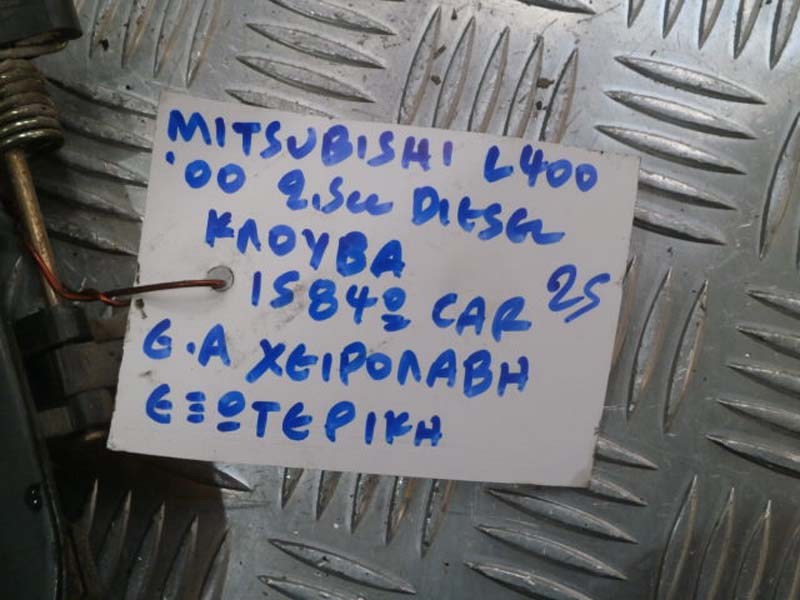 MITSUBISHI L400
'00 2.5cc DIESEL
ΚΛΟΥΒΑ
1584º CAR 25
Ε.Α ΧΕΙΡΟΛΑΒΗ
ΕΞΩΤΕΡΙΚΗ